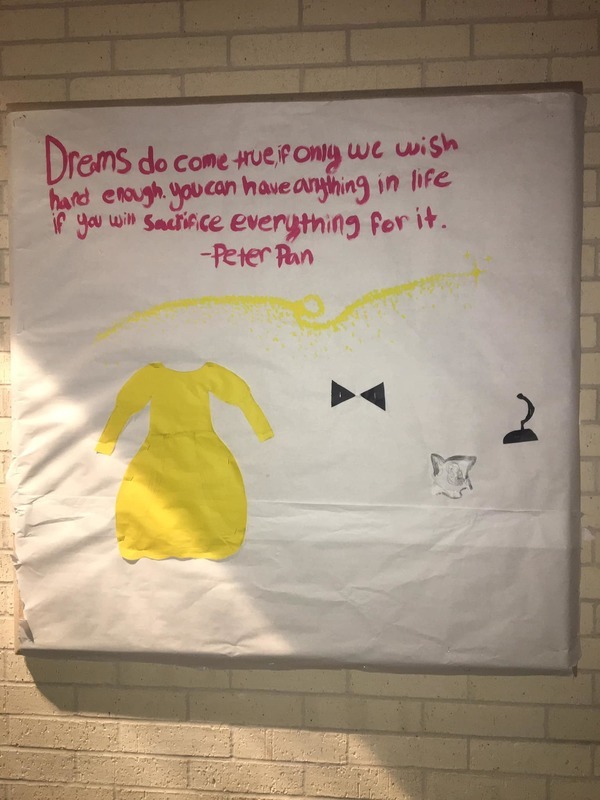 Dreams do come true, if only we wish
hard enough. you can have anything in life
if you will sacrifice everything for it.
-Peter Pan